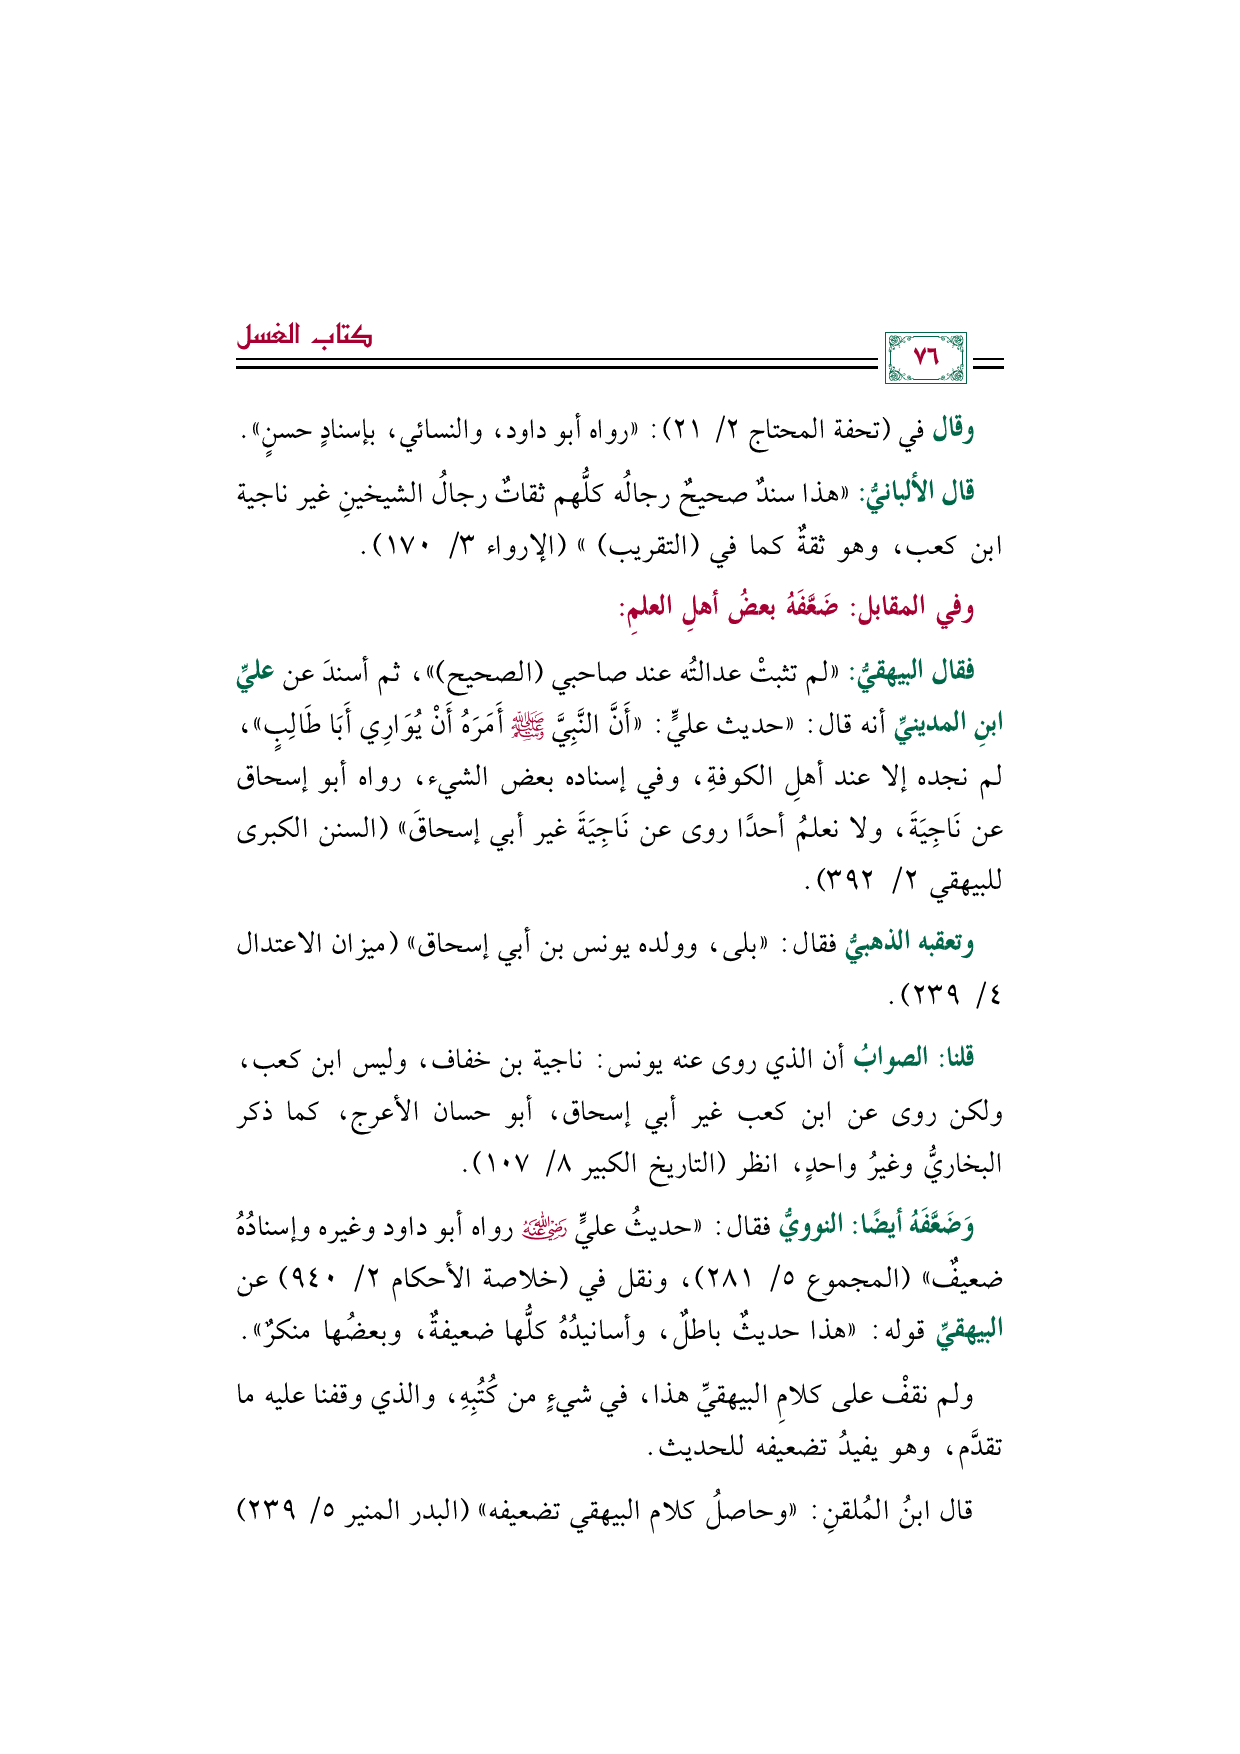 كتاب الغسل
٧٦
وقال في (تحفة المحتاج ٢/ ٢١): «رواه أبو داود، والنسائي، بإسنادٍ حسنٍ».
قال الألبانيُّ: «هذا سندٌ صحيحٌ رجالُه كلُّهم ثقاتٌ رجالُ الشيخينِ غير ناجية
ابن كعب، وهو ثقةٌ كما في (التقريب) » (الإرواء ٣/ ١٧٠).
وفي المقابل: ضَعَّفَهُ بعضُ أهلِ العلمِ:
فقال البيهقيُّ: «لم تثبتْ عدالتُه عند صاحبي (الصحيح)»، ثم أسندَ عن عليِّ
ابنِ المدينيِّ أنه قال: «حديث عليٍّ: «أَنَّ النَّبِيَّ ﷺ أَمَرَهُ أَنْ يُوَارِي أَبَا طَالِبٍ»،
لم نجده إلا عند أهلِ الكوفةِ، وفي إسناده بعض الشيء، رواه أبو إسحاق
عن نَاجِيَةَ، ولا نعلمُ أحدًا روى عن نَاجِيَةَ غير أبي إسحاقَ» (السنن الكبرى
للبيهقي ٢/ ٣٩٢).
وتعقبه الذهبيُّ فقال: «بلى، وولده يونس بن أبي إسحاق» (ميزان الاعتدال
٤/ ٢٣٩).
قلنا: الصوابُ أن الذي روى عنه يونس: ناجية بن خفاف، وليس ابن كعب،
ولكن روى عن ابن كعب غير أبي إسحاق، أبو حسان الأعرج، كما ذكر
البخاريُّ وغيرُ واحدٍ، انظر (التاريخ الكبير ٨/ ١٠٧).
وَضَعَّفَهُ أيضًا: النوويُّ فقال: «حديثُ عليٍّ رضي الله عنه رواه أبو داود وغيره وإسنادُهُ
ضعيفٌ» (المجموع ٥/ ٢٨١)، ونقل في (خلاصة الأحكام ٢/ ٩٤٠) عن
البيهقيِّ قوله: «هذا حديثٌ باطلٌ، وأسانيدُهُ كلُّها ضعيفةٌ، وبعضُها منكرٌ».
ولم نقفْ على كلامِ البيهقيِّ هذا، في شيءٍ من كُتُبِهِ، والذي وقفنا عليه ما
تقدَّم، وهو يفيدُ تضعيفه للحديث.
قال ابنُ المُلقنِ: «وحاصلُ كلام البيهقي تضعيفه» (البدر المنير ٥/ ٢٣٩)